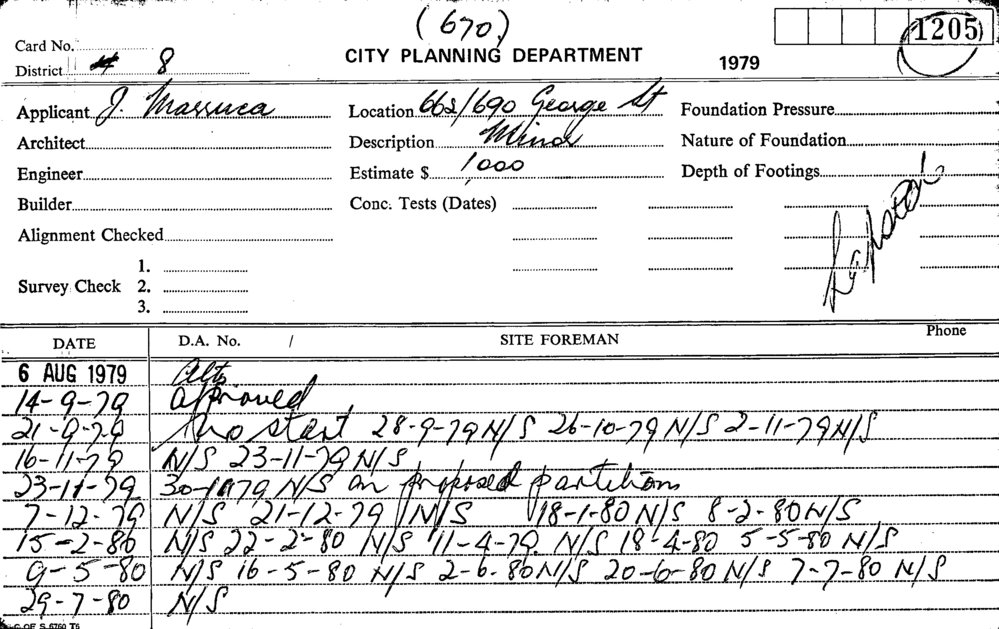 (670)
1205
Card No.
CITY PLANNING DEPARTMENT 1979
District 8
Applicant J. Massuca Location 662/690 George St Foundation Pressure
Architect Description Minor Nature of Foundation
Engineer Estimate $ 1,000 Depth of Footings
Builder Conc. Tests (Dates)
Alignment Checked
1.
Survey Check 2.
3.
DATE D.A. No. / SITE FOREMAN Phone
6 AUG 1979 Alts
14-9-79 Approved
21-9-79 No start 28-9-79 N/S 26-10-79 N/S 2-11-79 N/S
16-11-79 N/S 23-11-79 N/S
23-11-79 30-11-79 N/S on proposed partitions
7-12-79 N/S 21-12-79 N/S 18-1-80 N/S 8-2-80 N/S
15-2-80 N/S 22-2-80 N/S 11-4-79. N/S 18-4-80 5-5-80 N/S
9-5-80 N/S 16-5-80 N/S 2-6-80 N/S 20-6-80 N/S 7-7-80 N/S
29-7-80 N/S